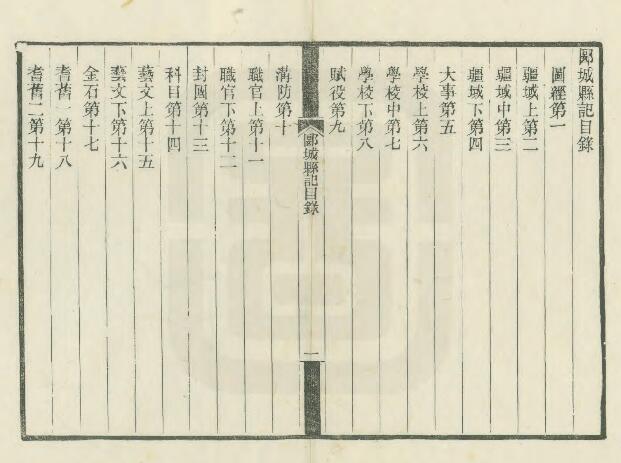 郾城縣記目錄
圖經第一
疆域上第二
疆域中第三
疆域下第四
大事第五
學校上第六
學校中第七
學校下第八
賦役第九
郾城縣記目錄
一
溝防第十
職官上第十一
職官下第十二
封國第十三
科目第十四
藝文上第十五
藝文下第十六
金石第十七
耆舊一第十八
耆舊二第十九